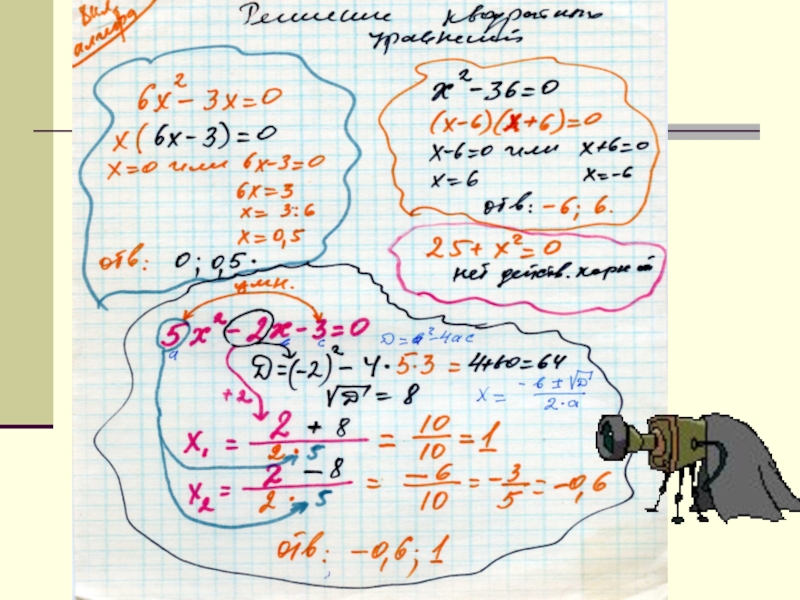 алгебра
Решение квадратных
уравнений
6x² - 3x = 0
x(6x - 3) = 0
x = 0 или 6x - 3 = 0
6x = 3
x = 3:6
x = 0,5
отв: 0; 0,5.
x² - 36 = 0
(x-6)(x+6) = 0
x-6=0 или x+6=0
x = 6 x = -6
отв: -6; 6.
25 + x² = 0
нет действ. корней
умн.
5x² - 2x - 3 = 0
a в c
D = в² - 4ac
D = (-2)² - 4·5·3 = 4+60 = 64
+2
√D = 8
x = -в ± √D / 2·a
x₁ = 2 + 8 / 2·5 = 10/10 = 1
x₂ = 2 - 8 / 2·5 = -6/10 = -3/5 = -0,6
отв: -0,6; 1